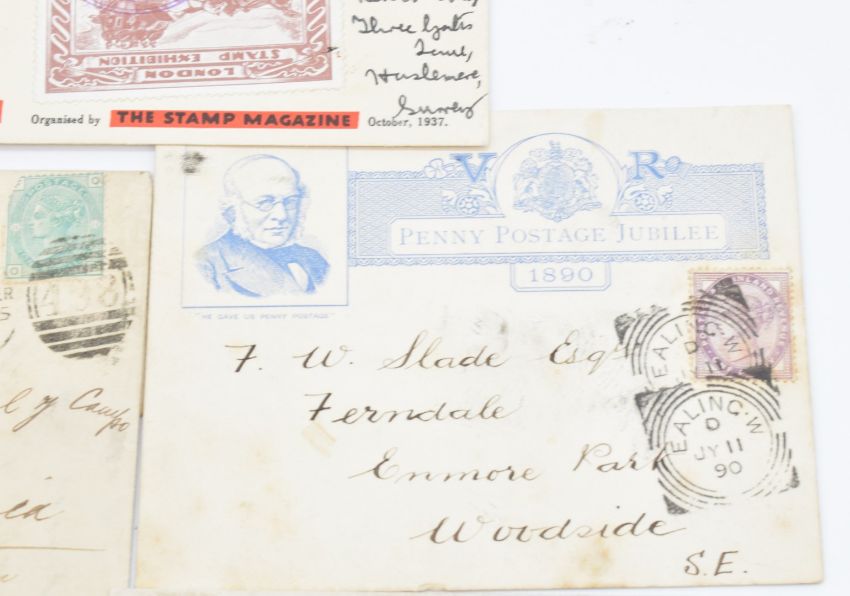 Three Gates
Lane,
Haslemere,
Surrey
LONDON
STAMP EXHIBITION
Organised by THE STAMP MAGAZINE October, 1937.
POSTAGE
498
V R
PENNY POSTAGE JUBILEE
1890
"HE GAVE US PENNY POSTAGE"
INLAND
F. W. Slade Esqr
Ferndale
Enmore Park
Woodside
S.E.
EALING·W
D
11
EALING·W
D
JY 11
90